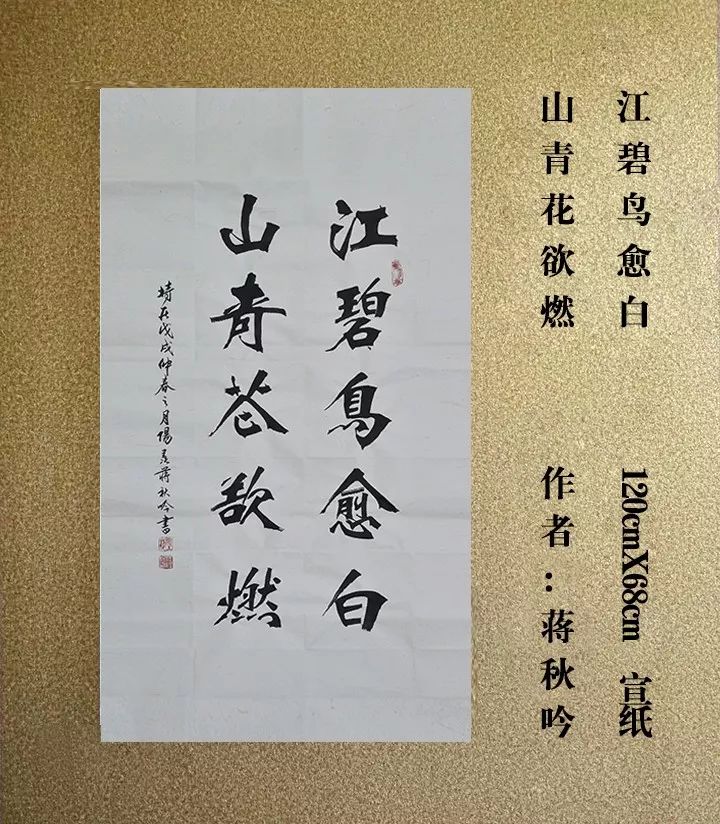 江碧鸟愈白
山青花欲燃
120cmX68cm 宣纸
作者：蒋秋吟
江碧鳥愈白
山青花欲燃
时在戊戌仲春之月陽羡蒋秋吟書